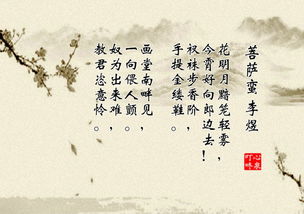 菩萨蛮 李煜
花明月黯笼轻雾，
今宵好向郎边去！
衩袜步香阶，
手提金缕鞋。
画堂南畔见，
一向偎人颤。
奴为出来难，
教君恣意怜。
心泉
叮咚